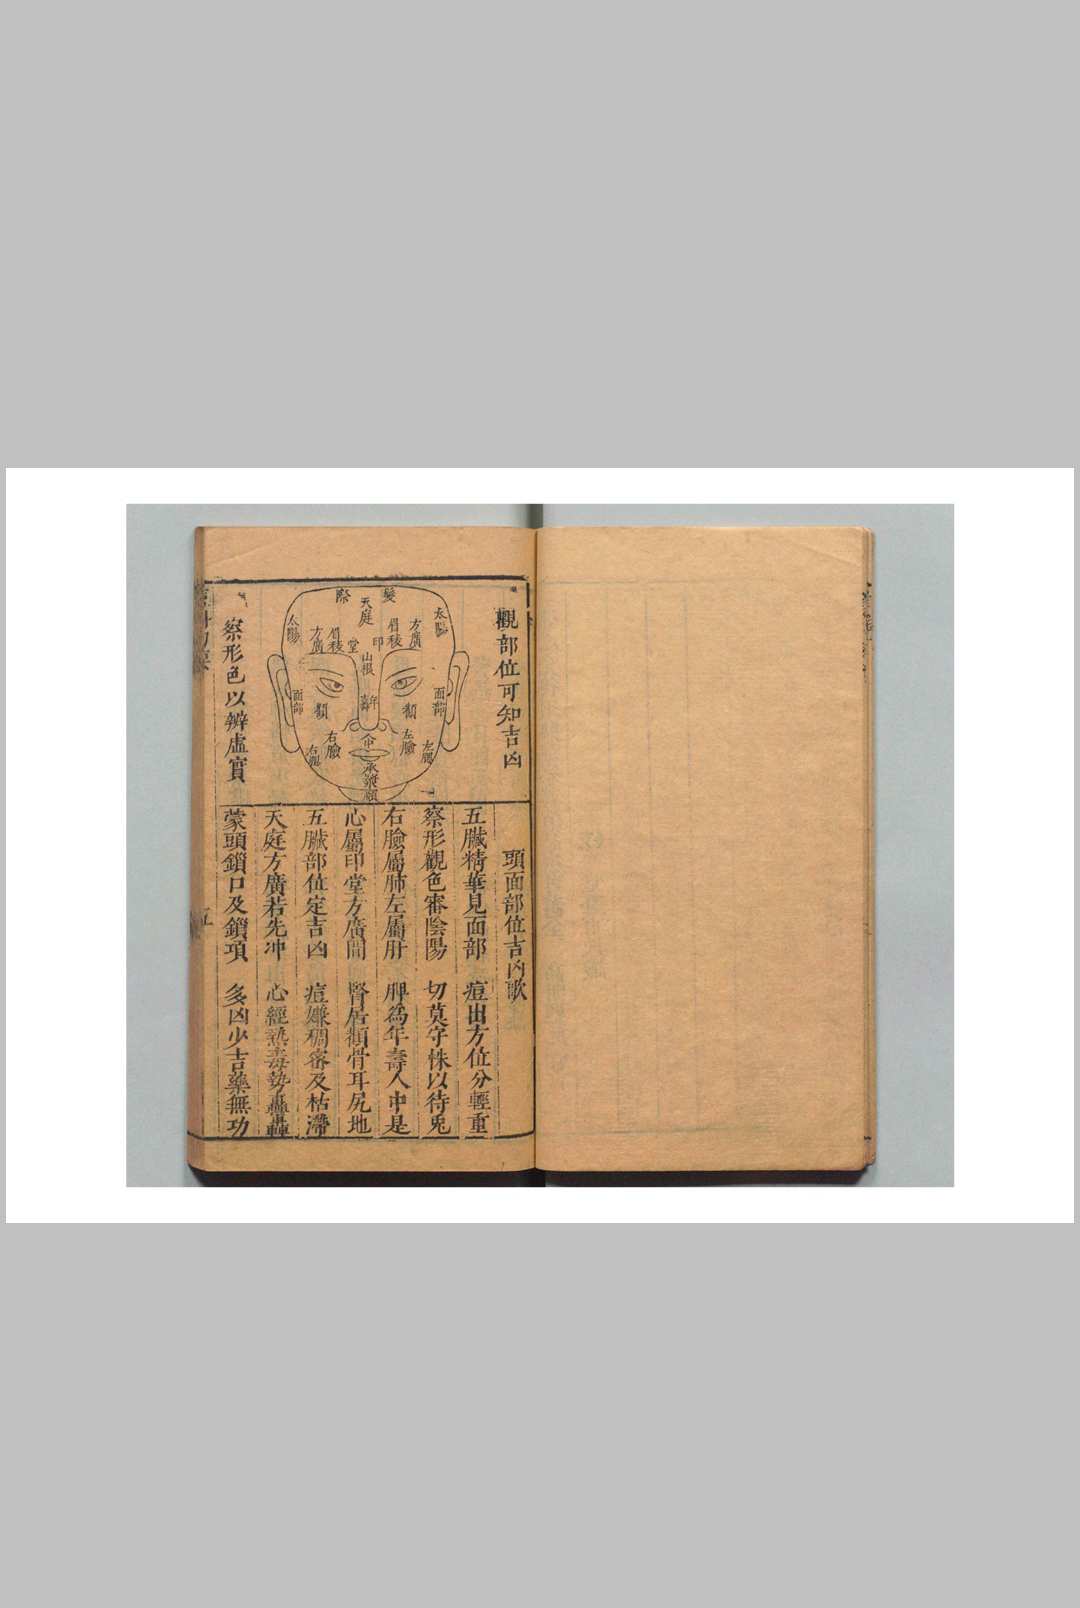 觀部位可知吉凶
髮
際
天庭
太陽
太陽
方廣
方廣
眉稜
眉稜
印
堂
山根
年
壽
面部
面部
顴
顴
左臉
右臉
左腮
右腮
人中
承漿
頦
察形色以辨虛實
頭面部位吉凶歌
五臟精華見面部 痘出方位分輕重
察形觀色審陰陽 切莫守株以待兎
右臉屬肺左屬肝 脾為年壽人中是
心屬印堂方廣間 腎居頦骨耳尻地
五臟部位定吉凶 痘嫌稠密及枯滯
天庭方廣若先冲 心經熱毒勢轟轟
蒙頭鎖口及鎖項 多凶少吉藥無功
五